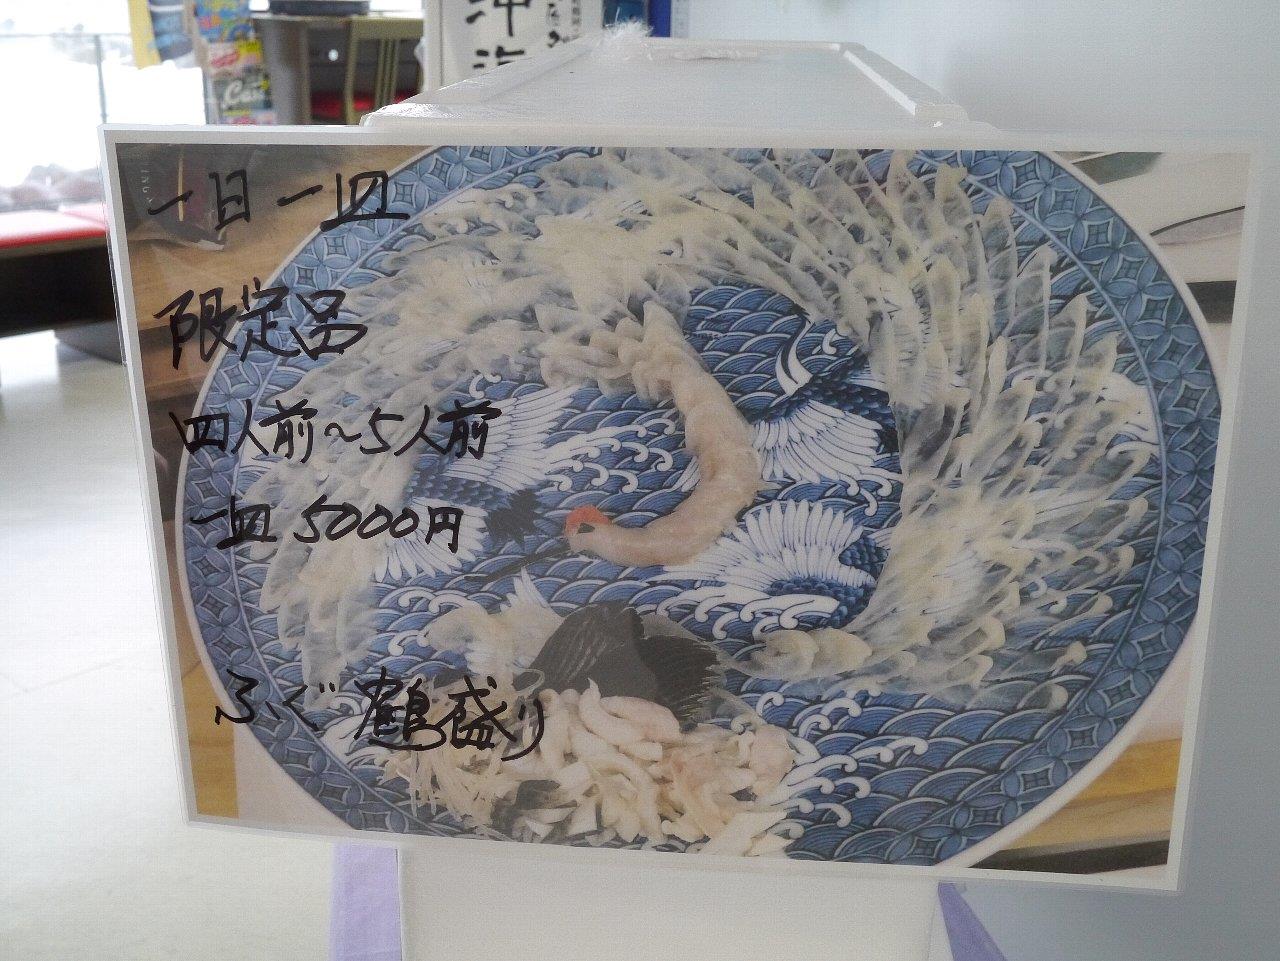 一日一皿
限定品
四人前～5人前
一皿 5000円
ふぐ 鶴盛り
沖海